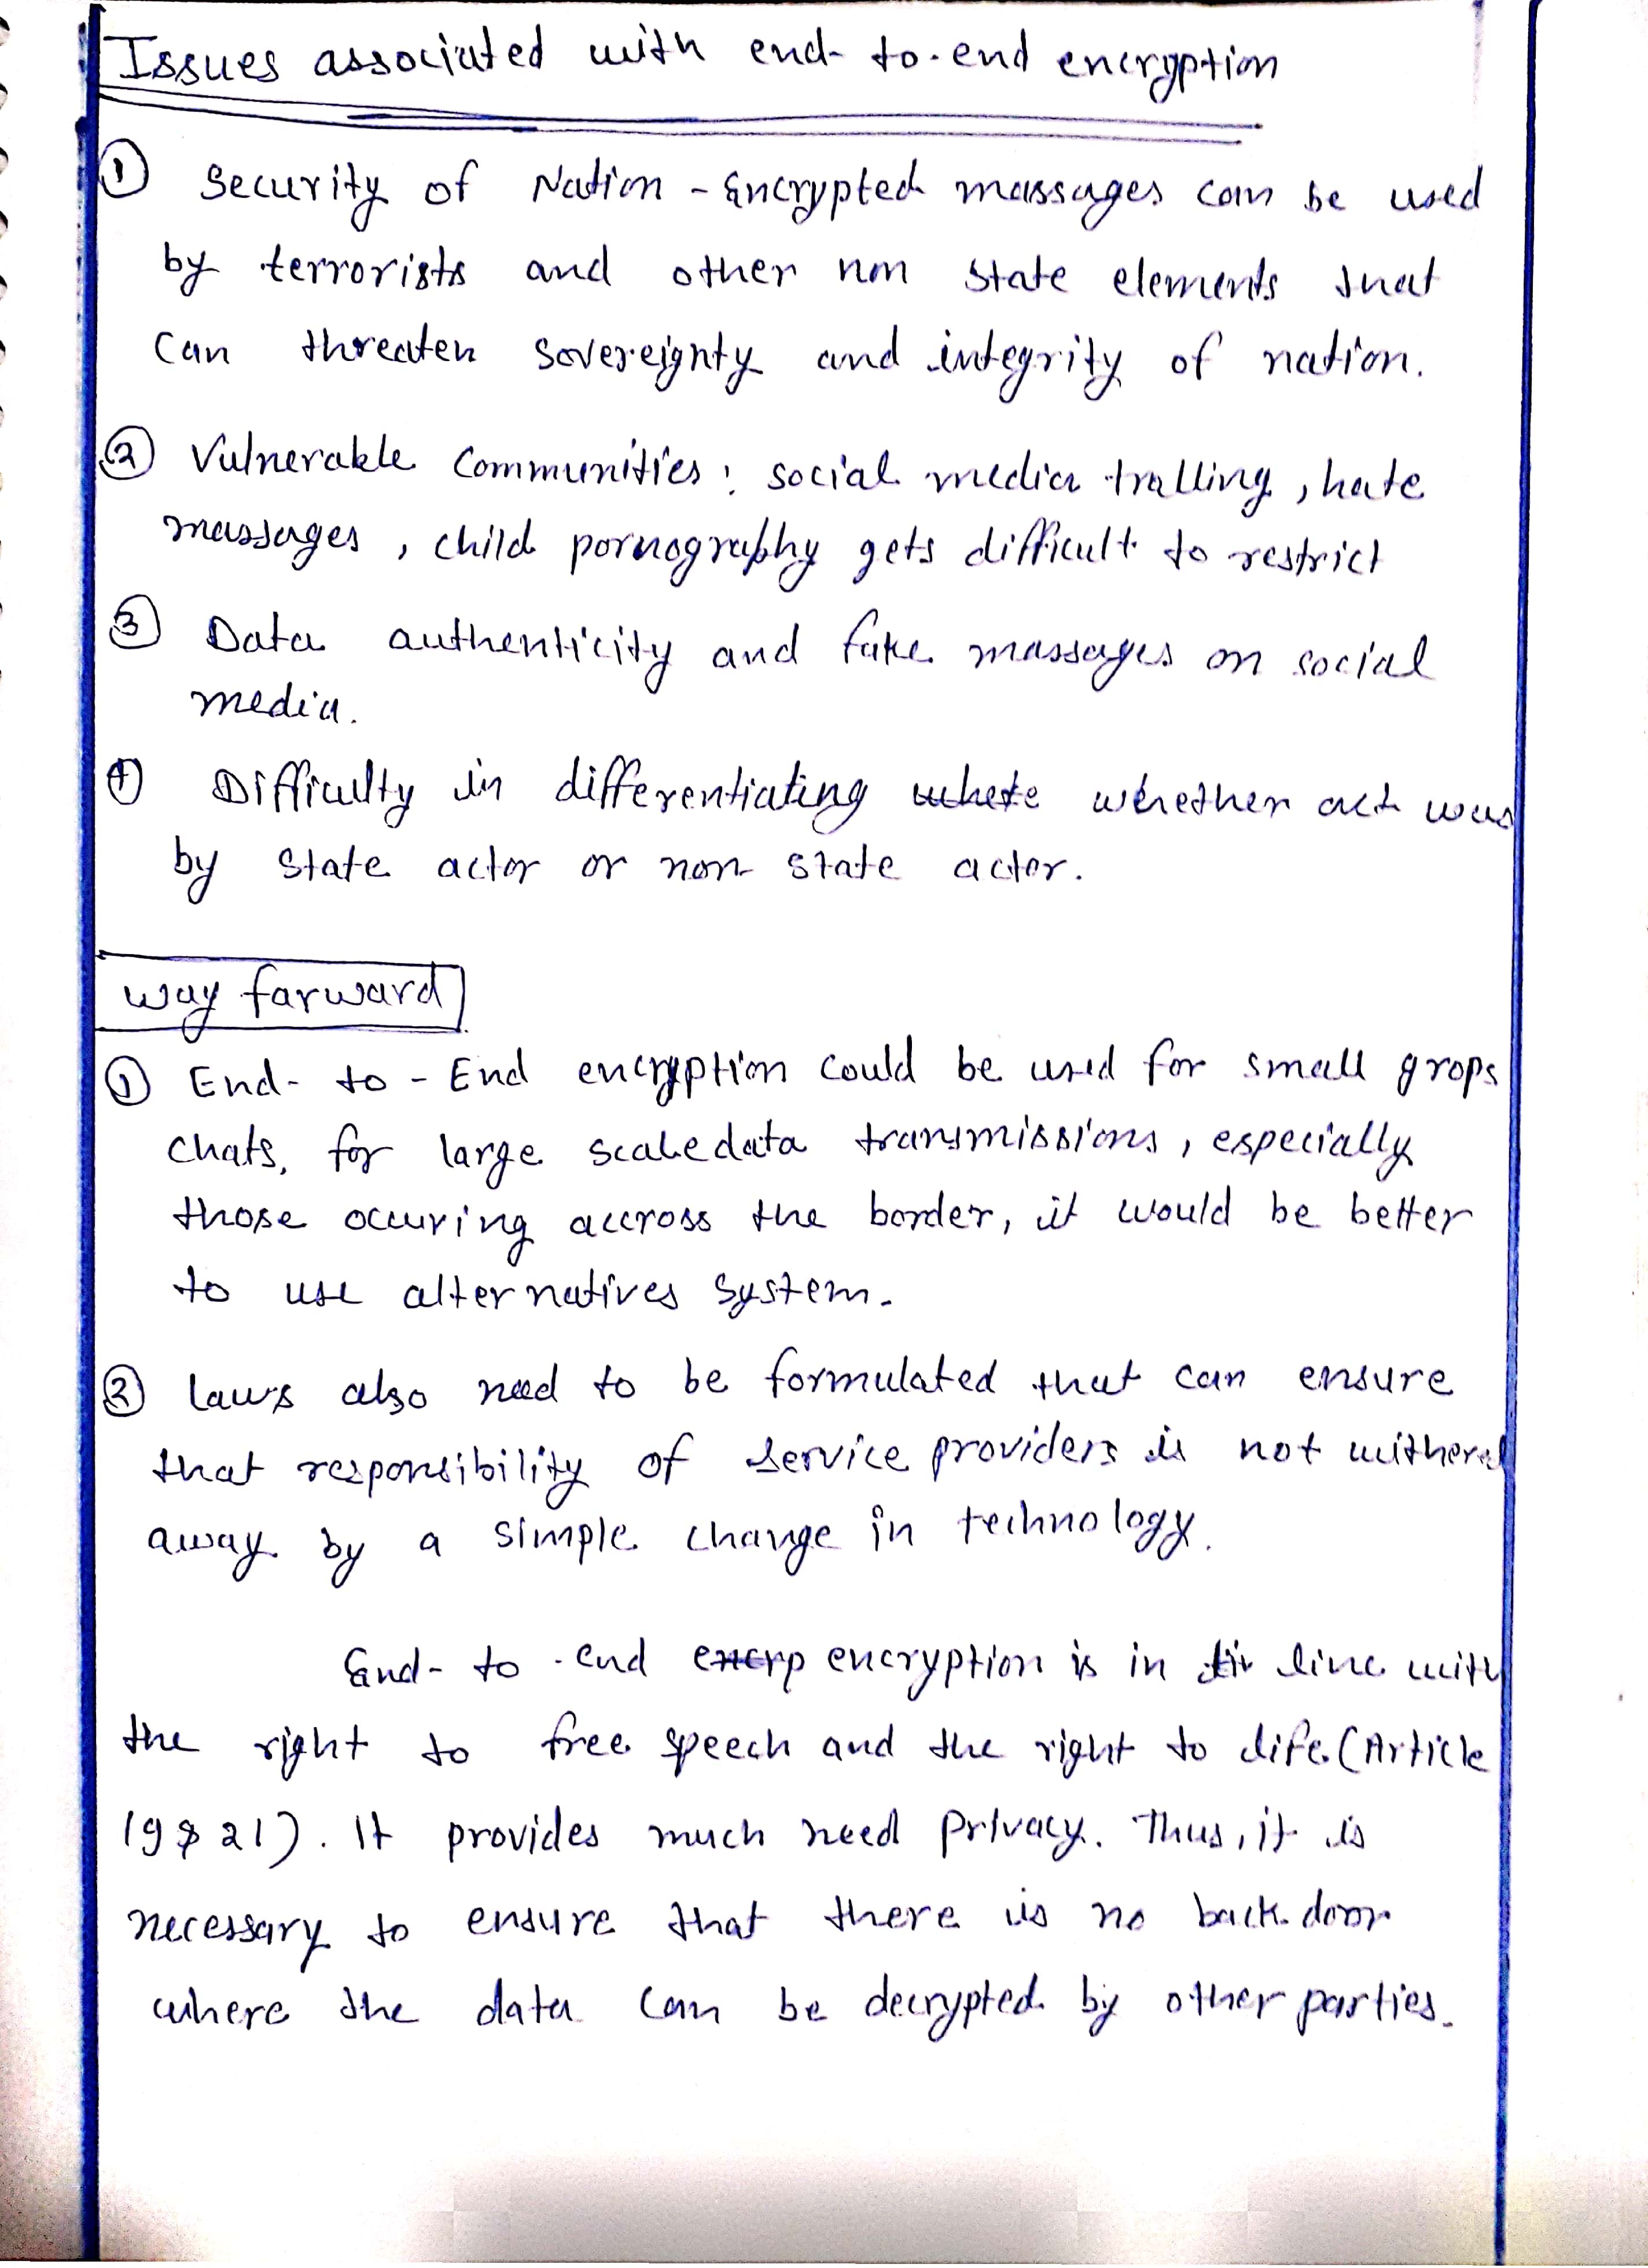 Issues associated with end-to-end encryption
① Security of Nation - Encrypted massages can be used
by terrorists and other non state elements that
can threaten sovereignty and integrity of nation.
② Vulnerable Communities: social media tralling, hate
massages, child pornography gets difficult to restrict
③ Data authenticity and fake massages on social
media.
④ Difficulty in differentiating where whether act was
by state actor or non state actor.
way farward
① End-to-End encryption could be used for small grops
chats, for large scale data transmissions, especially
those occuring accross the border, it would be better
to use alternatives system.
② laws also need to be formulated that can ensure
that responsibility of service providers is not withered
away by a simple change in technology.
End-to-end encrp encryption is in line with
the right to free speech and the right to life (Article
19 & 21). It provides much need privacy. Thus, it is
necessary to ensure that there is no back door
where the data can be decrypted by other parties.